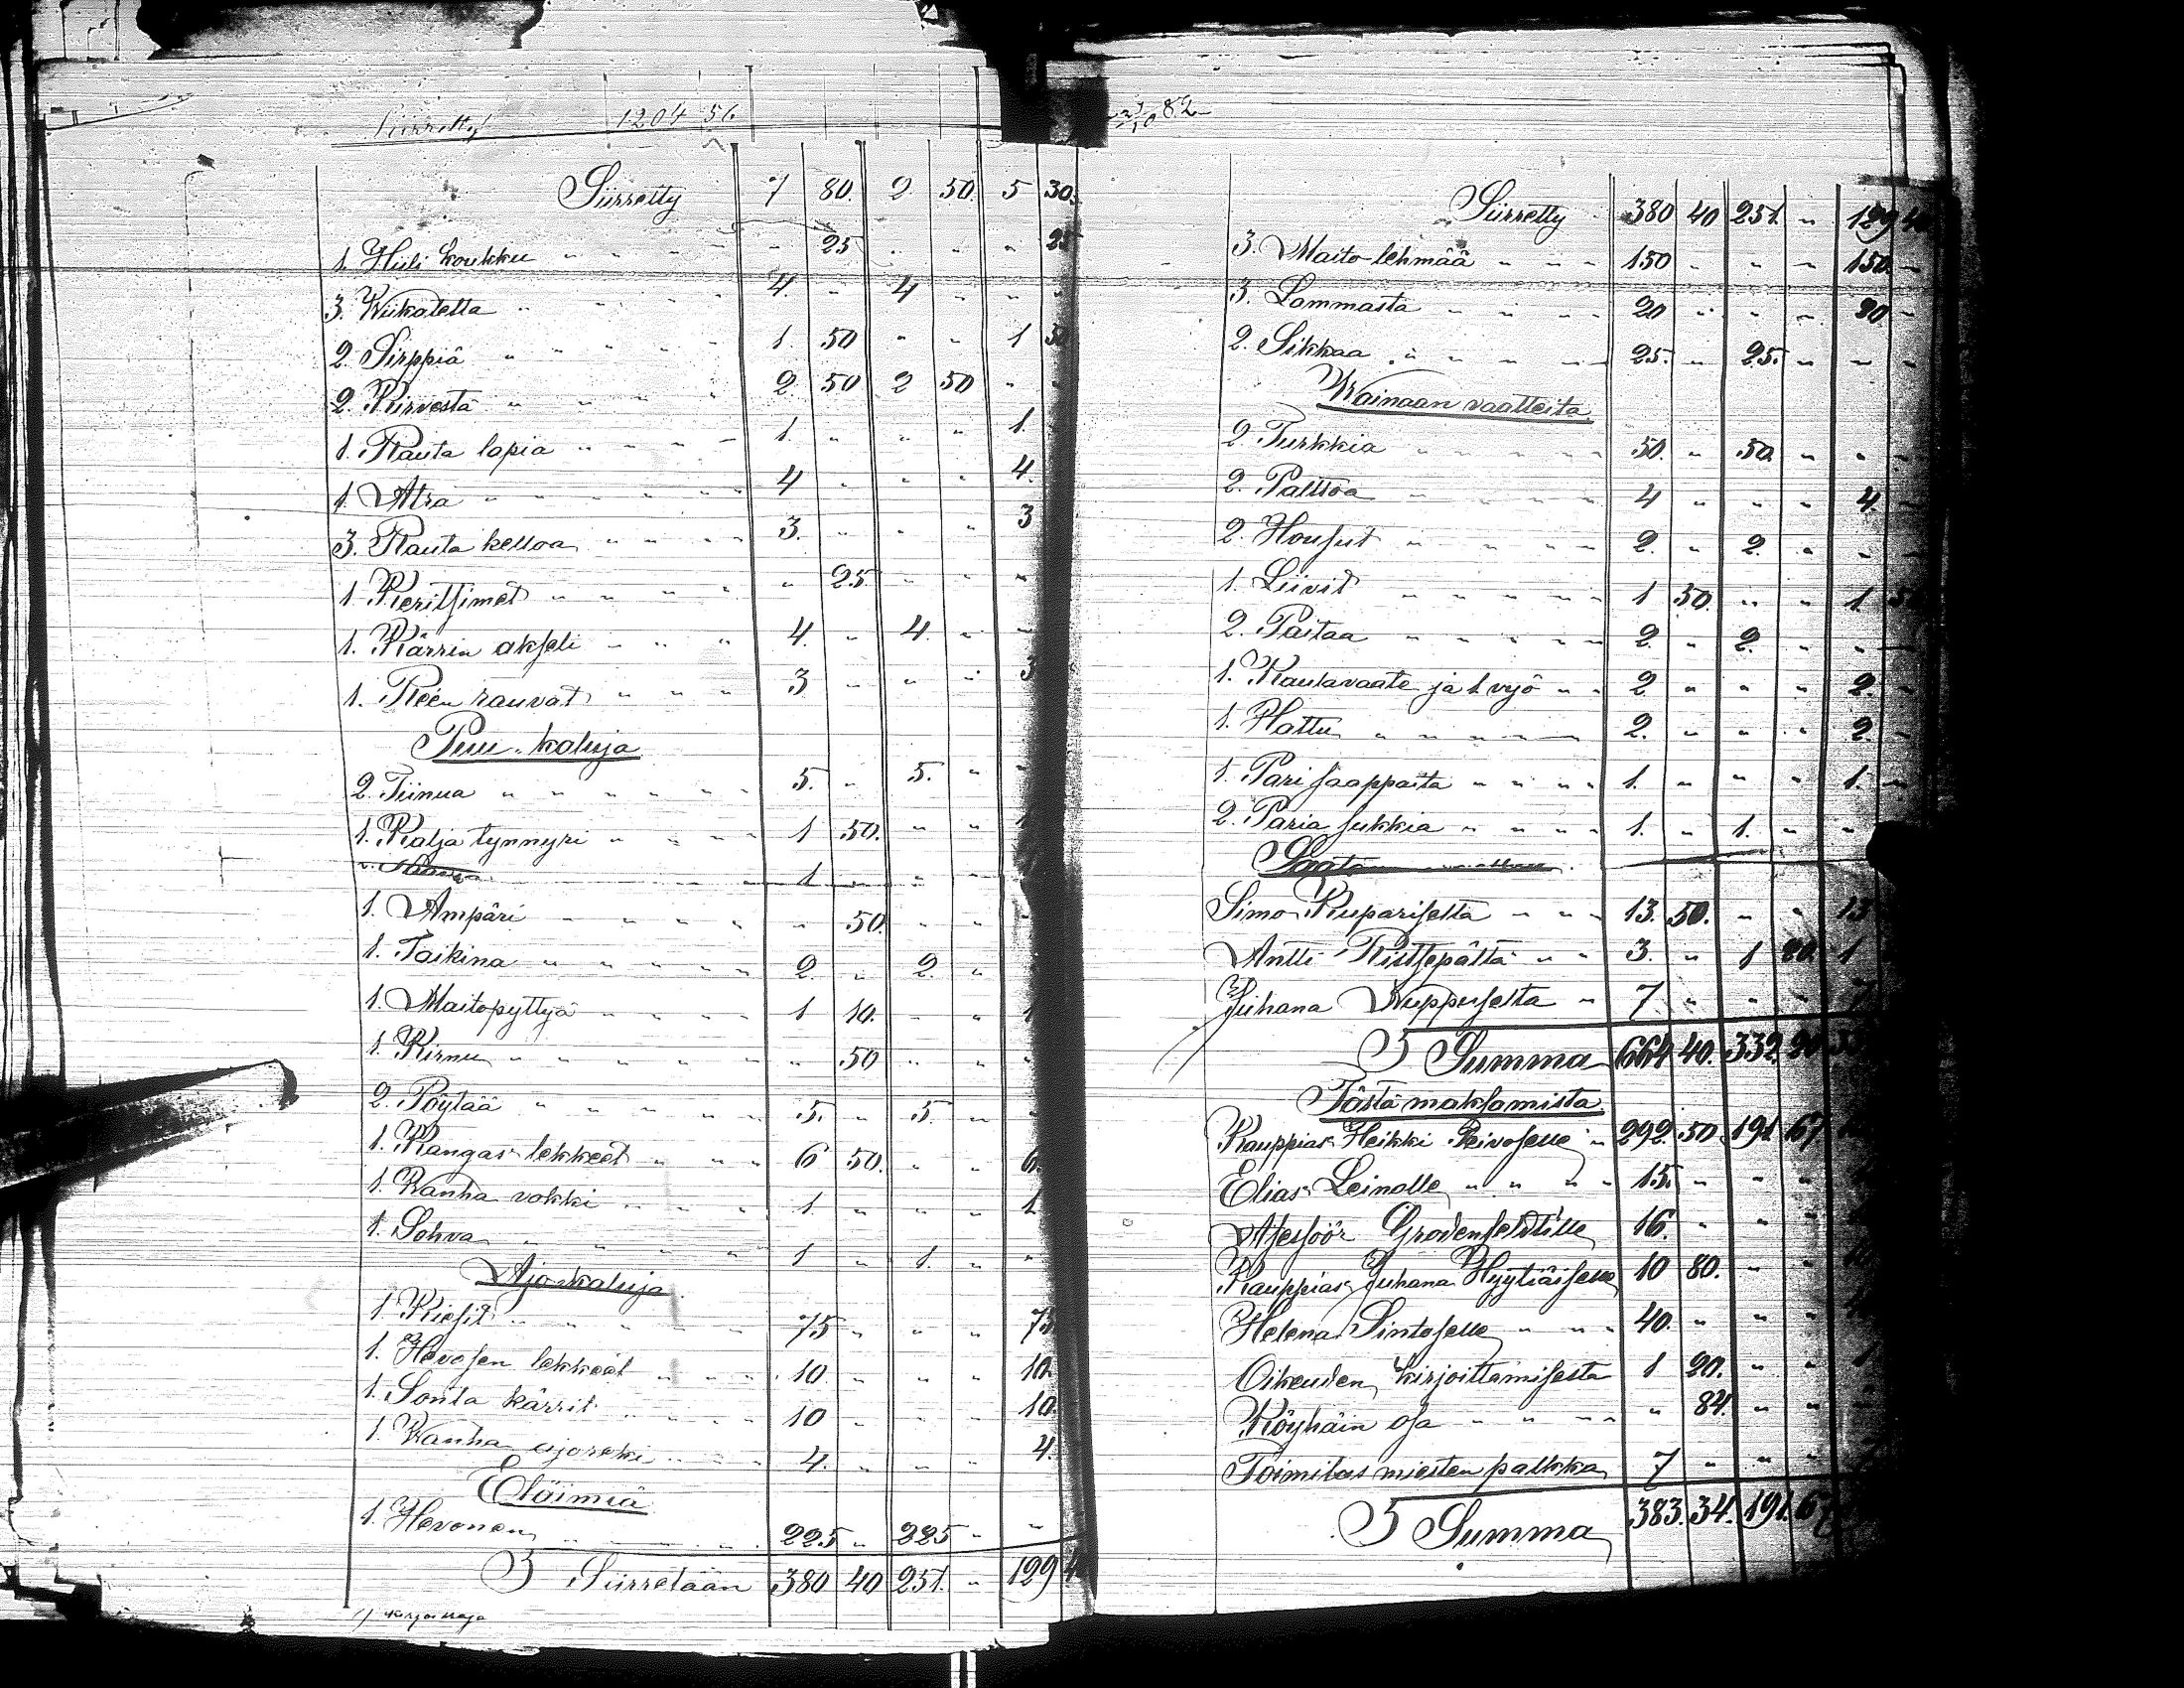 Siirretty 1204 56
Siirretty 7 80. 2 50. 5 30.
1. Hiili koukku " " " " 25 " " " 25
3. Wiikatetta " " " 4. " 4 " " "
2. Sirppiä " " " " " 1. 50 " " 1 50
2. Kirvestä " " " " 2 50 2 50 " "
1. Rauta lapia " " " " 1. " " " 1.
1. Atra " " " " " " 4 " " " 4.
3. Rauta kelloa " " " " 3. " " " 3
1. Keritsimet " " " " " 25 " " "
1. Kärrin akseli " " " 4. " 4. " "
1. Reen rauvat " " " 3 " " " 3
Puu-kaluja
2. Tiinua " " " " " " 5. " 5. " "
1. Kalja tynnyri " " " " 1 50. " " 1
1 " " "
1. Ampäri " " " " " " 50. " " "
1. Taikina " " " " " 2. " 2. " "
1. Maitopyttyä " " " " 1 10. " " 1
1. Kirnu " " " " " " 50 " " "
2. Pöytää " " " " " 5. " 5. " "
1. Kangas lekkeet " " " 6 50. " " 6.
1. Wanha vokki " " " " 1. " " " 1
1. Sohva " " " " " 1 " 1. " "
Ajo-kaluja
1. Kiesit " " " " " 75 " " " 75
1. Hevosen lekkeet " " " 10. " " " 10.
1. Sonta kärrit " " " " 10 " " " 10.
1. Wanha ajoreki " " " 4. " " " 4.
Eläimiä
1. Hevonen " " " 225 " 225 " "
S Siirretään 380 40 251. " 129 4
82
Siirretty 380 40 251. " 129 40
3. Maito lehmää " " " 150 " " " 150. "
3. Lammasta " " " " 20 " " " 20. "
2. Sikkaa " " " " " 25. " 25. " " "
Wainaan vaatteita
2. Turkkia " " " " " 50. " 50. " " "
2. Palttoa " " " " 4 " " " 4. "
2. Housut " " " " " 2. " 2. " " "
1. Liivit " " " " " 1 50. " " 1 50
2. Paitaa " " " " " 2. " 2. " " "
1. Kaulavaate ja 1 vyö " " 2 " " " 2. "
1. Hattu " " " " " 2. " " " 2. "
1. Pari saappaita " " " " 1. " " " 1. "
2. Paria sukkia " " " " 1. " 1. " "
Simo Kuparisetta " " " 13. 50. " " 13
Antti Ristsepältä " " 3. " 1 80. 1
Juhana Kuppuselta " 7. " " " 7
S Summa 664 40. 332.
Tästä maksamista
Kauppias Heikki Peivoselle " 292. 50 191. 67
Elias Leinolle " " " " 15. " " "
Asessöör Grodenfeldtille 16. " " "
Kauppias Juhana Hyytiäiselle 10 80. " "
Helena Sintoselle " " " 40. " " "
Oikeuden kirjoittamisesta 1 20. " "
Köyhäin osa " " " " " 84. " "
Toimitus miesten palkka 7 " " "
S Summa 383. 34. 191. 67